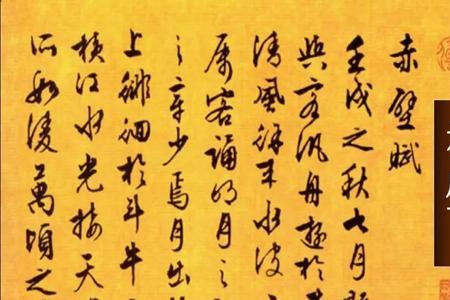 赤壁賦
壬戌之秋七月
與客汎舟遊於
清風徐来水波
属客誦明月之
之章少焉月出
上徘徊於斗牛
横江水光接天
所如凌萬頃之